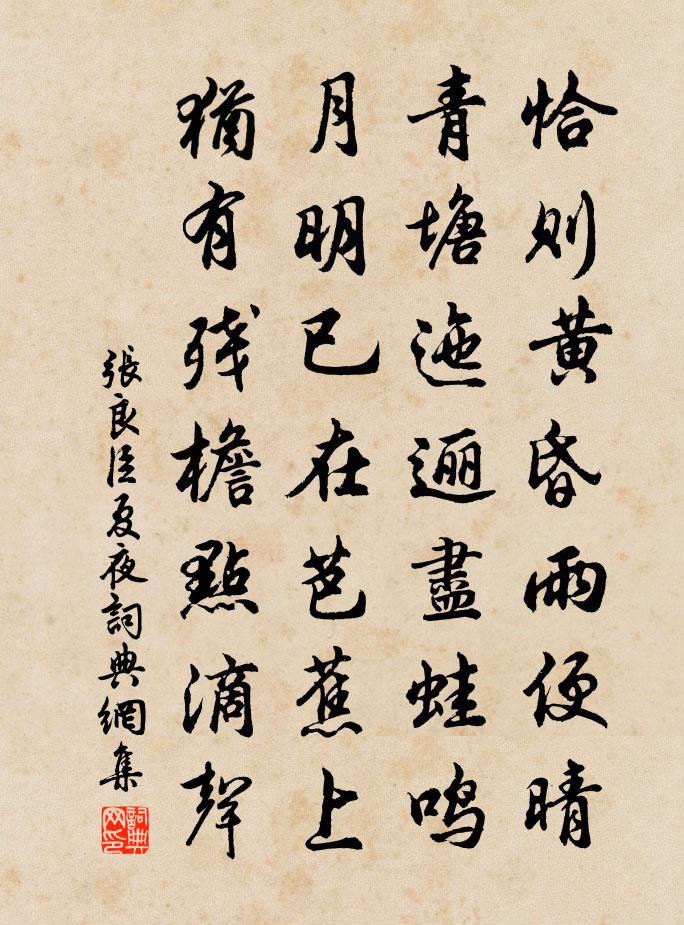 恰则黄昏雨便晴
青塘迤逦盡蛙鸣
月明已在芭蕉上
猶有残檐點滴聲
張良臣夏夜詞典網集
詞典网印